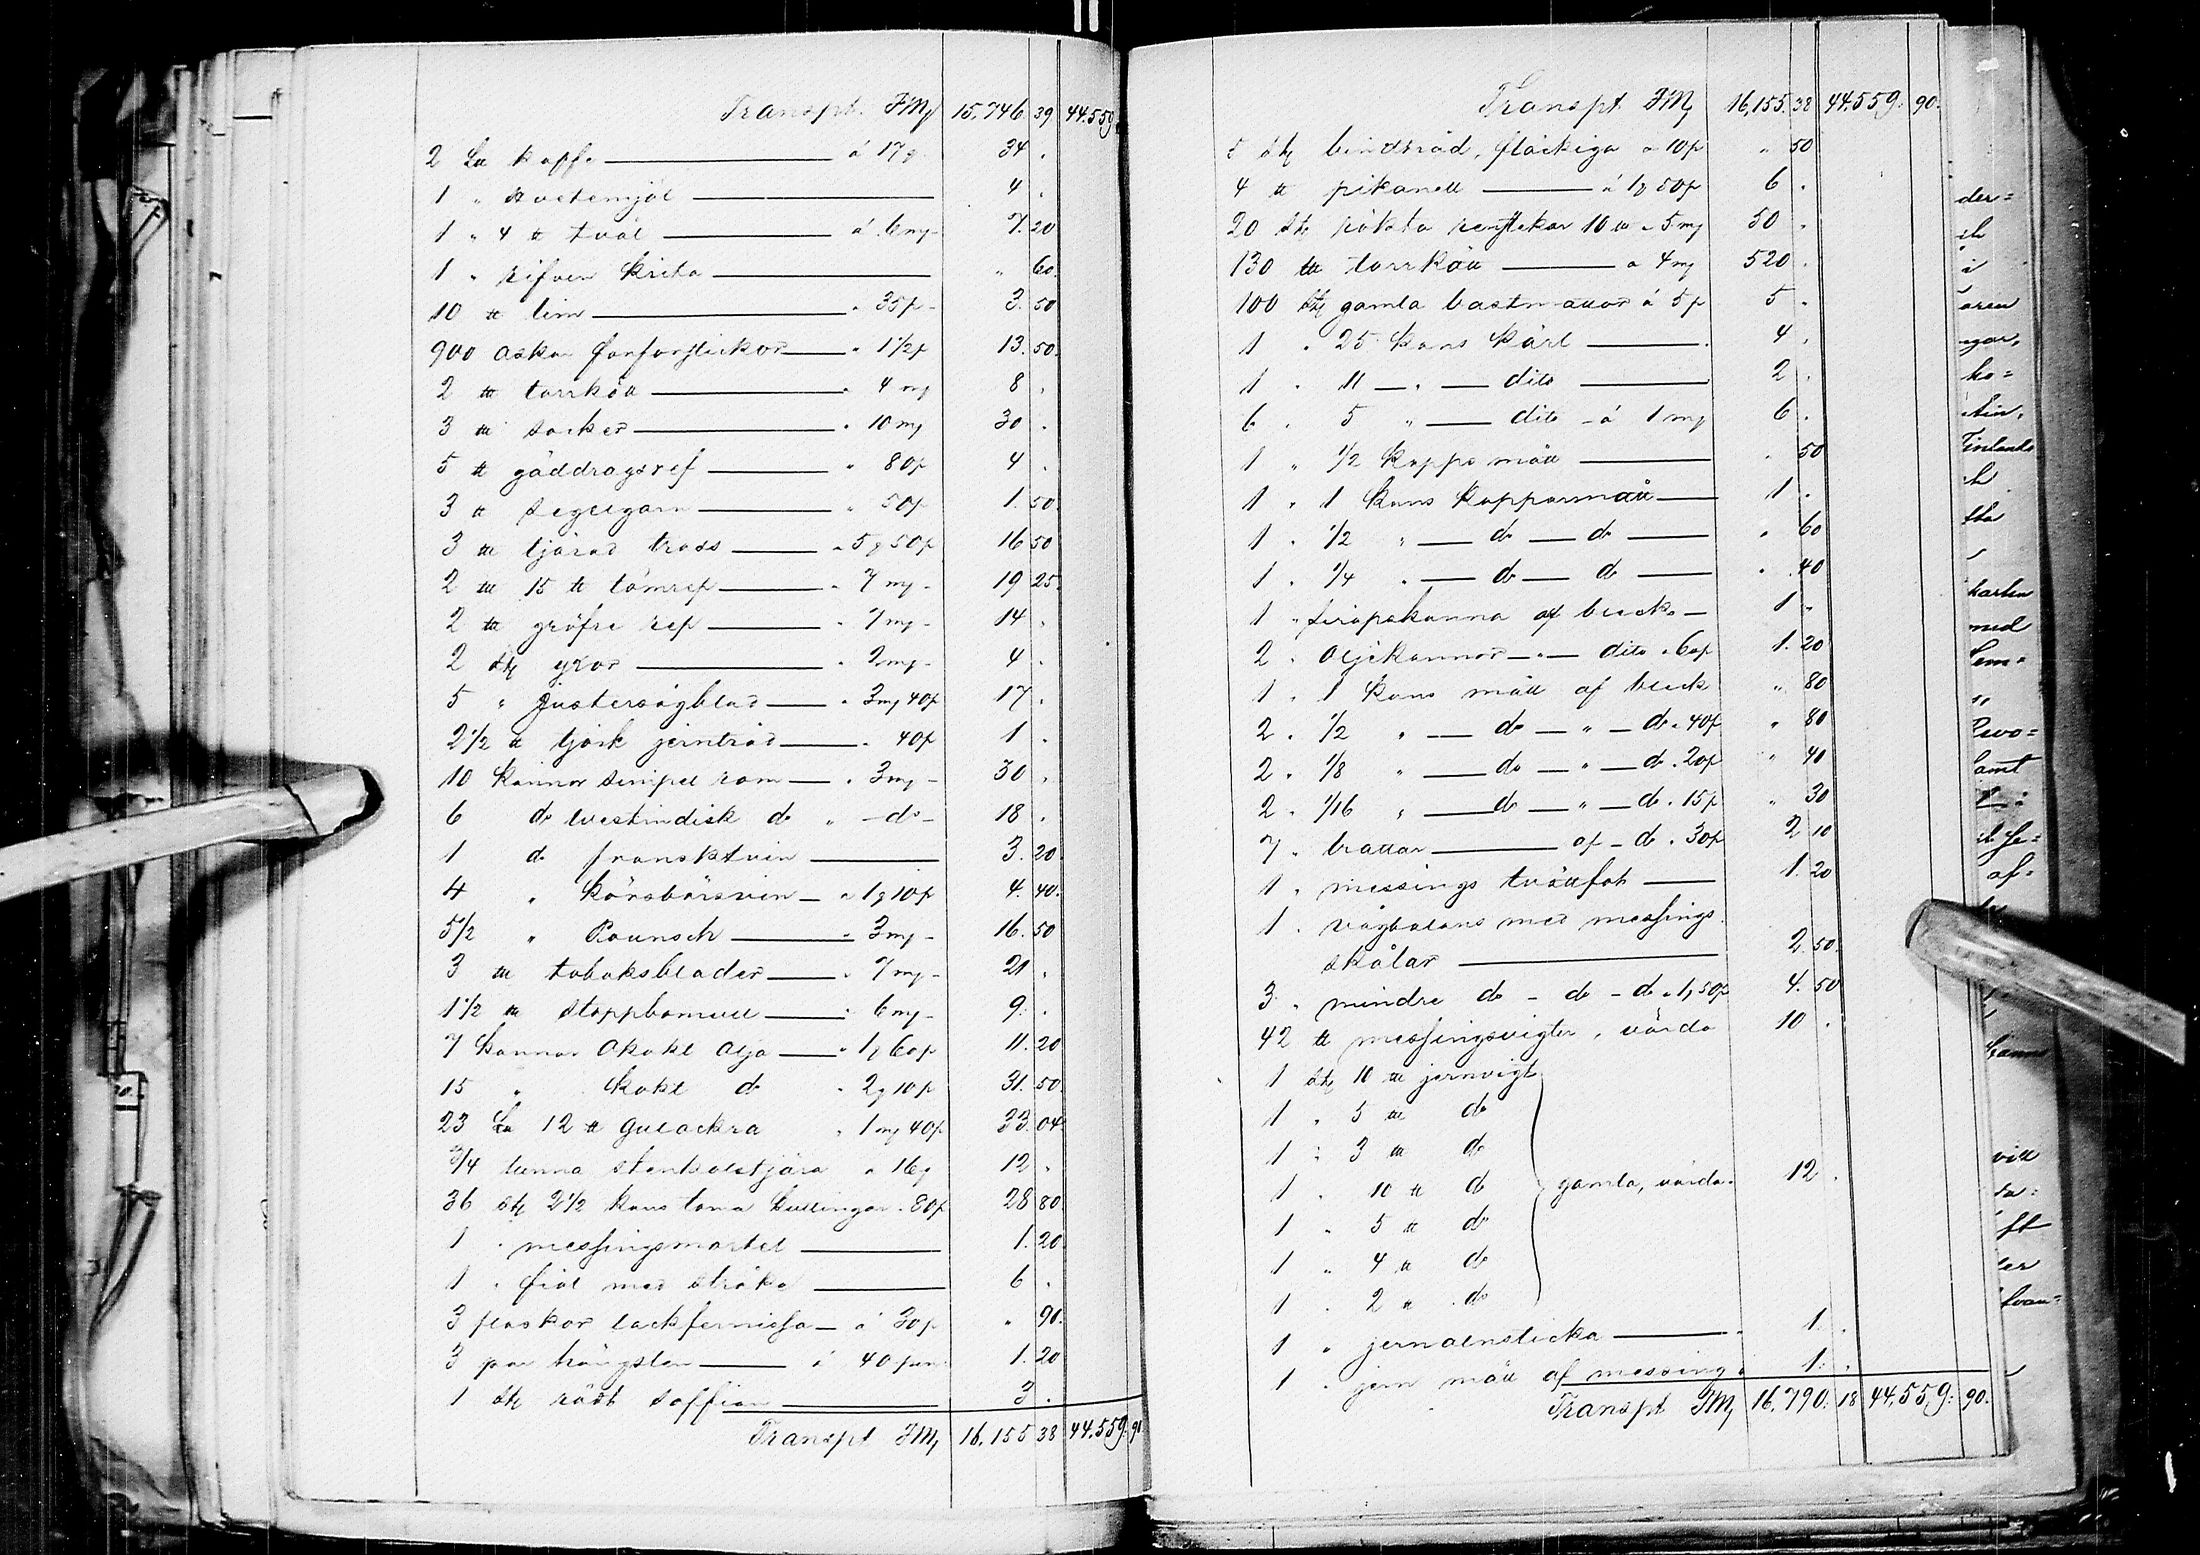 Transpt. FM 15,746. 39 44.559
2 L℔ kaffe á 17 34 .
1 " 4 .
1 " 4 ℔ tvål á 6 mg 7. 20
1 " rifven krita " 60.
10 ℔ lim " 35 p 3. 50
900 askar 1 1/2 p 13. 50.
2 ℔ torrkött " 4 mg 8 .
3 ℔ socker " 10 mg 30 .
5 ℔ gäddragsref " 80 p 4 .
3 ℔ segelgarn " 50 p 1. 50
3 ℔ tjärad tross " 5 50 p 16 50
2 ℔ 15 ℔ tömrep " 7 mg 19 25.
2 ℔ gröfre rep " 7 mg 14 .
2 st yxor " 2 mg 4 .
5 " justersågblad " 3 mg 40 p 17 .
2 1/2 ℔ tjock jerntråd " 40 p 1 .
10 kannor simpel rom " 3 mg 30 .
6 do westindisk do " do 18 .
1 do fransktvin 3. 20
4 " körsbärsvin " 1 10 p 4. 40.
5 1/2 " Pounsch " 3 mg 16. 50
3 ℔ tobaksblader " 7 mg 21 .
1 1/2 ℔ stoppbomull " 6 mg 9. .
7 kannor okokt olja " 1 60 p 11. 20
15 " kokt do " 2 10 p 31. 50.
23 L℔ 12 ℔ gulockra " 1 mg 40 p 33. 04.
3/4 tunna stenkolstjära " 16 12 .
36 st 2 1/2 kans toma kuttingar " 80 p 28 80.
1 " messingsmortel 1. 20
1 " fiol med stråke 6 .
3 flaskor lackfernissa á 30 p " 90.
3 par hängslen á 40 pen 1. 20
1 st rödt saffian 3 .
Transpt FM 16,155 38 44.559. 9
Transpt. FM 16,155. 38 44.559. 90.
5 st bindtråd, fläckiga " 10 p " 50
4 ℔ pikanell á 1 50 p 6 .
20 st rökta 10 ℔ " 5 mg 50 .
130 ℔ torrkött " 4 mg 520 .
100 st gamla bastmattor á 5 p 5 .
1 " 25 kans kärl 4 .
1 " 11 " dito 2 .
6 " 5 " dito á 1 mg 6 .
1 " 1/2 kapps mått " 50
1 " 1 kans kopparmått 1 .
1 " 1/2 " do do " 60
1 " 1/4 " do do " 40
1 " siropskanna af bleck 1 "
2 " oljekannor " dito " 60 p 1. 20
1 " 1 kans mått af bleck " 80
2 " 1/2 " do " do " 40 p " 80
2 " 1/8 " do " do " 20 p " 40
2 " 1/16 " do " do " 15 p " 30
7 " trattar af do " 30 p 2 10
1 " messings tvättfat 1. 20
1 " vågbalans med messings
skålar 2. 50.
3 " mindre do do do " 1, 50 p 4. 50
42 ℔ messingsvigter, värda 10 .
1 st 10 ℔ jernvigt
1 " 5 ℔ do
1 " 3 ℔ do
1 " 10 ℔ do gamla, värda 12 .
1 " 5 ℔ do
1 " 4 ℔ do
1 " 2 ℔ do
1 " jernalnsticka 1. .
1 " jern mått af messing 1. .
Transpt FM 16,790. 18 44,559. 90.
der=
i
ären
ngar,
ho=
Finlands
med
samt
af=
vill
ft
ler